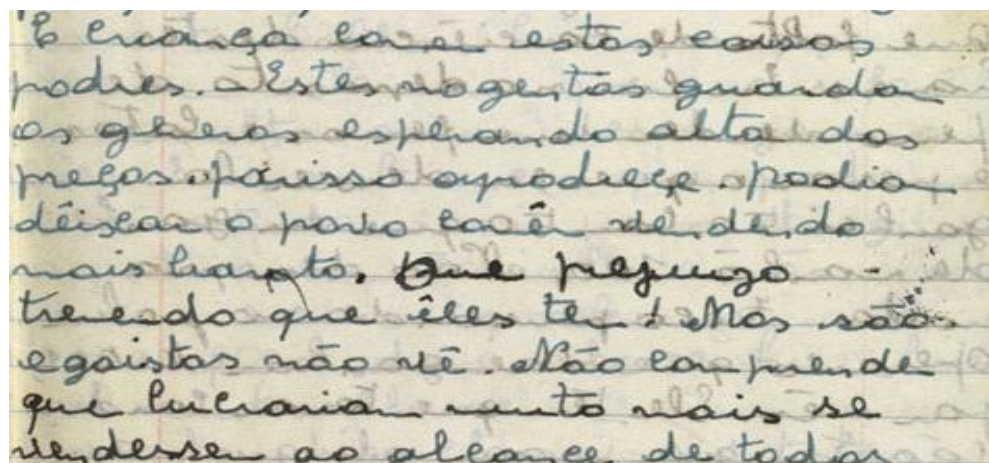 E criança comer estas coisas
podres. Estes nogentos guardam
os gêneros esperando alta dos
preços. porisso apodreçe. podiam
dêixar o povo comêr vendendo
mais baráto. Que prejuizo
tremendo que êles tem! Mas são
egoistas não vê. Não comprende
que lucrariam muito mais se
vendessem ao alcançe de todos